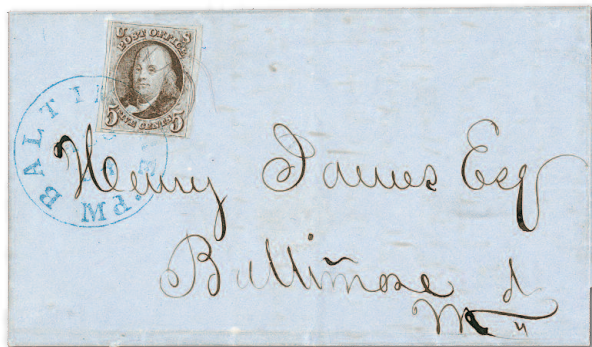 U S
POST OFFICE
FIVE CENTS
5 5
BALTI
PM
Henry James Esq
Baltimore
Md